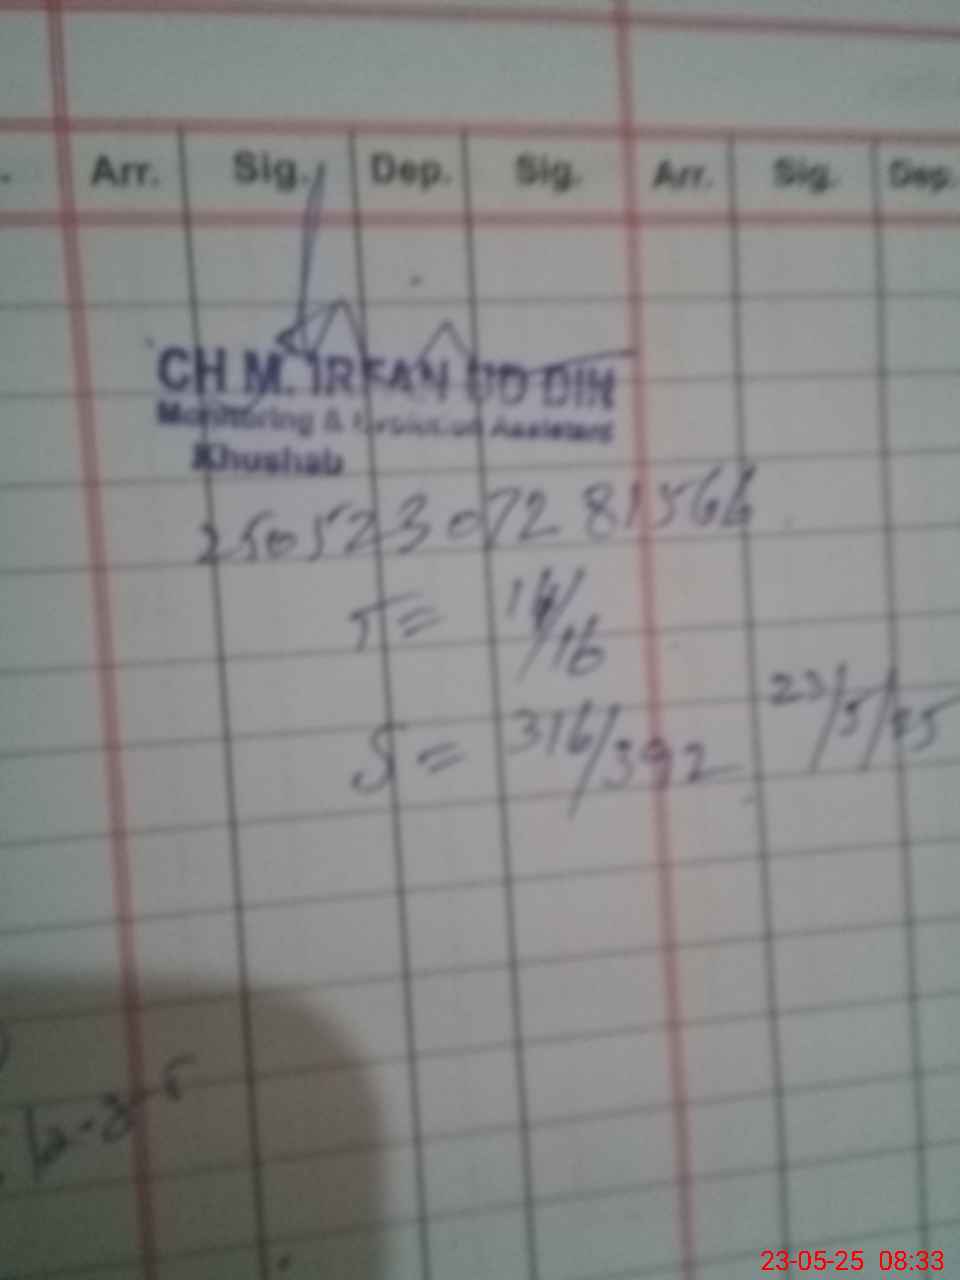 Arr. Sig. Dep. Sig. Arr. Sig. Dep.
CH M. IRFAN UD DIN
Monitoring & Evaluation Assistant
Khushab
25052307281566
T = 14/16
S = 316/392
23/5/25
23-05-25 08:33